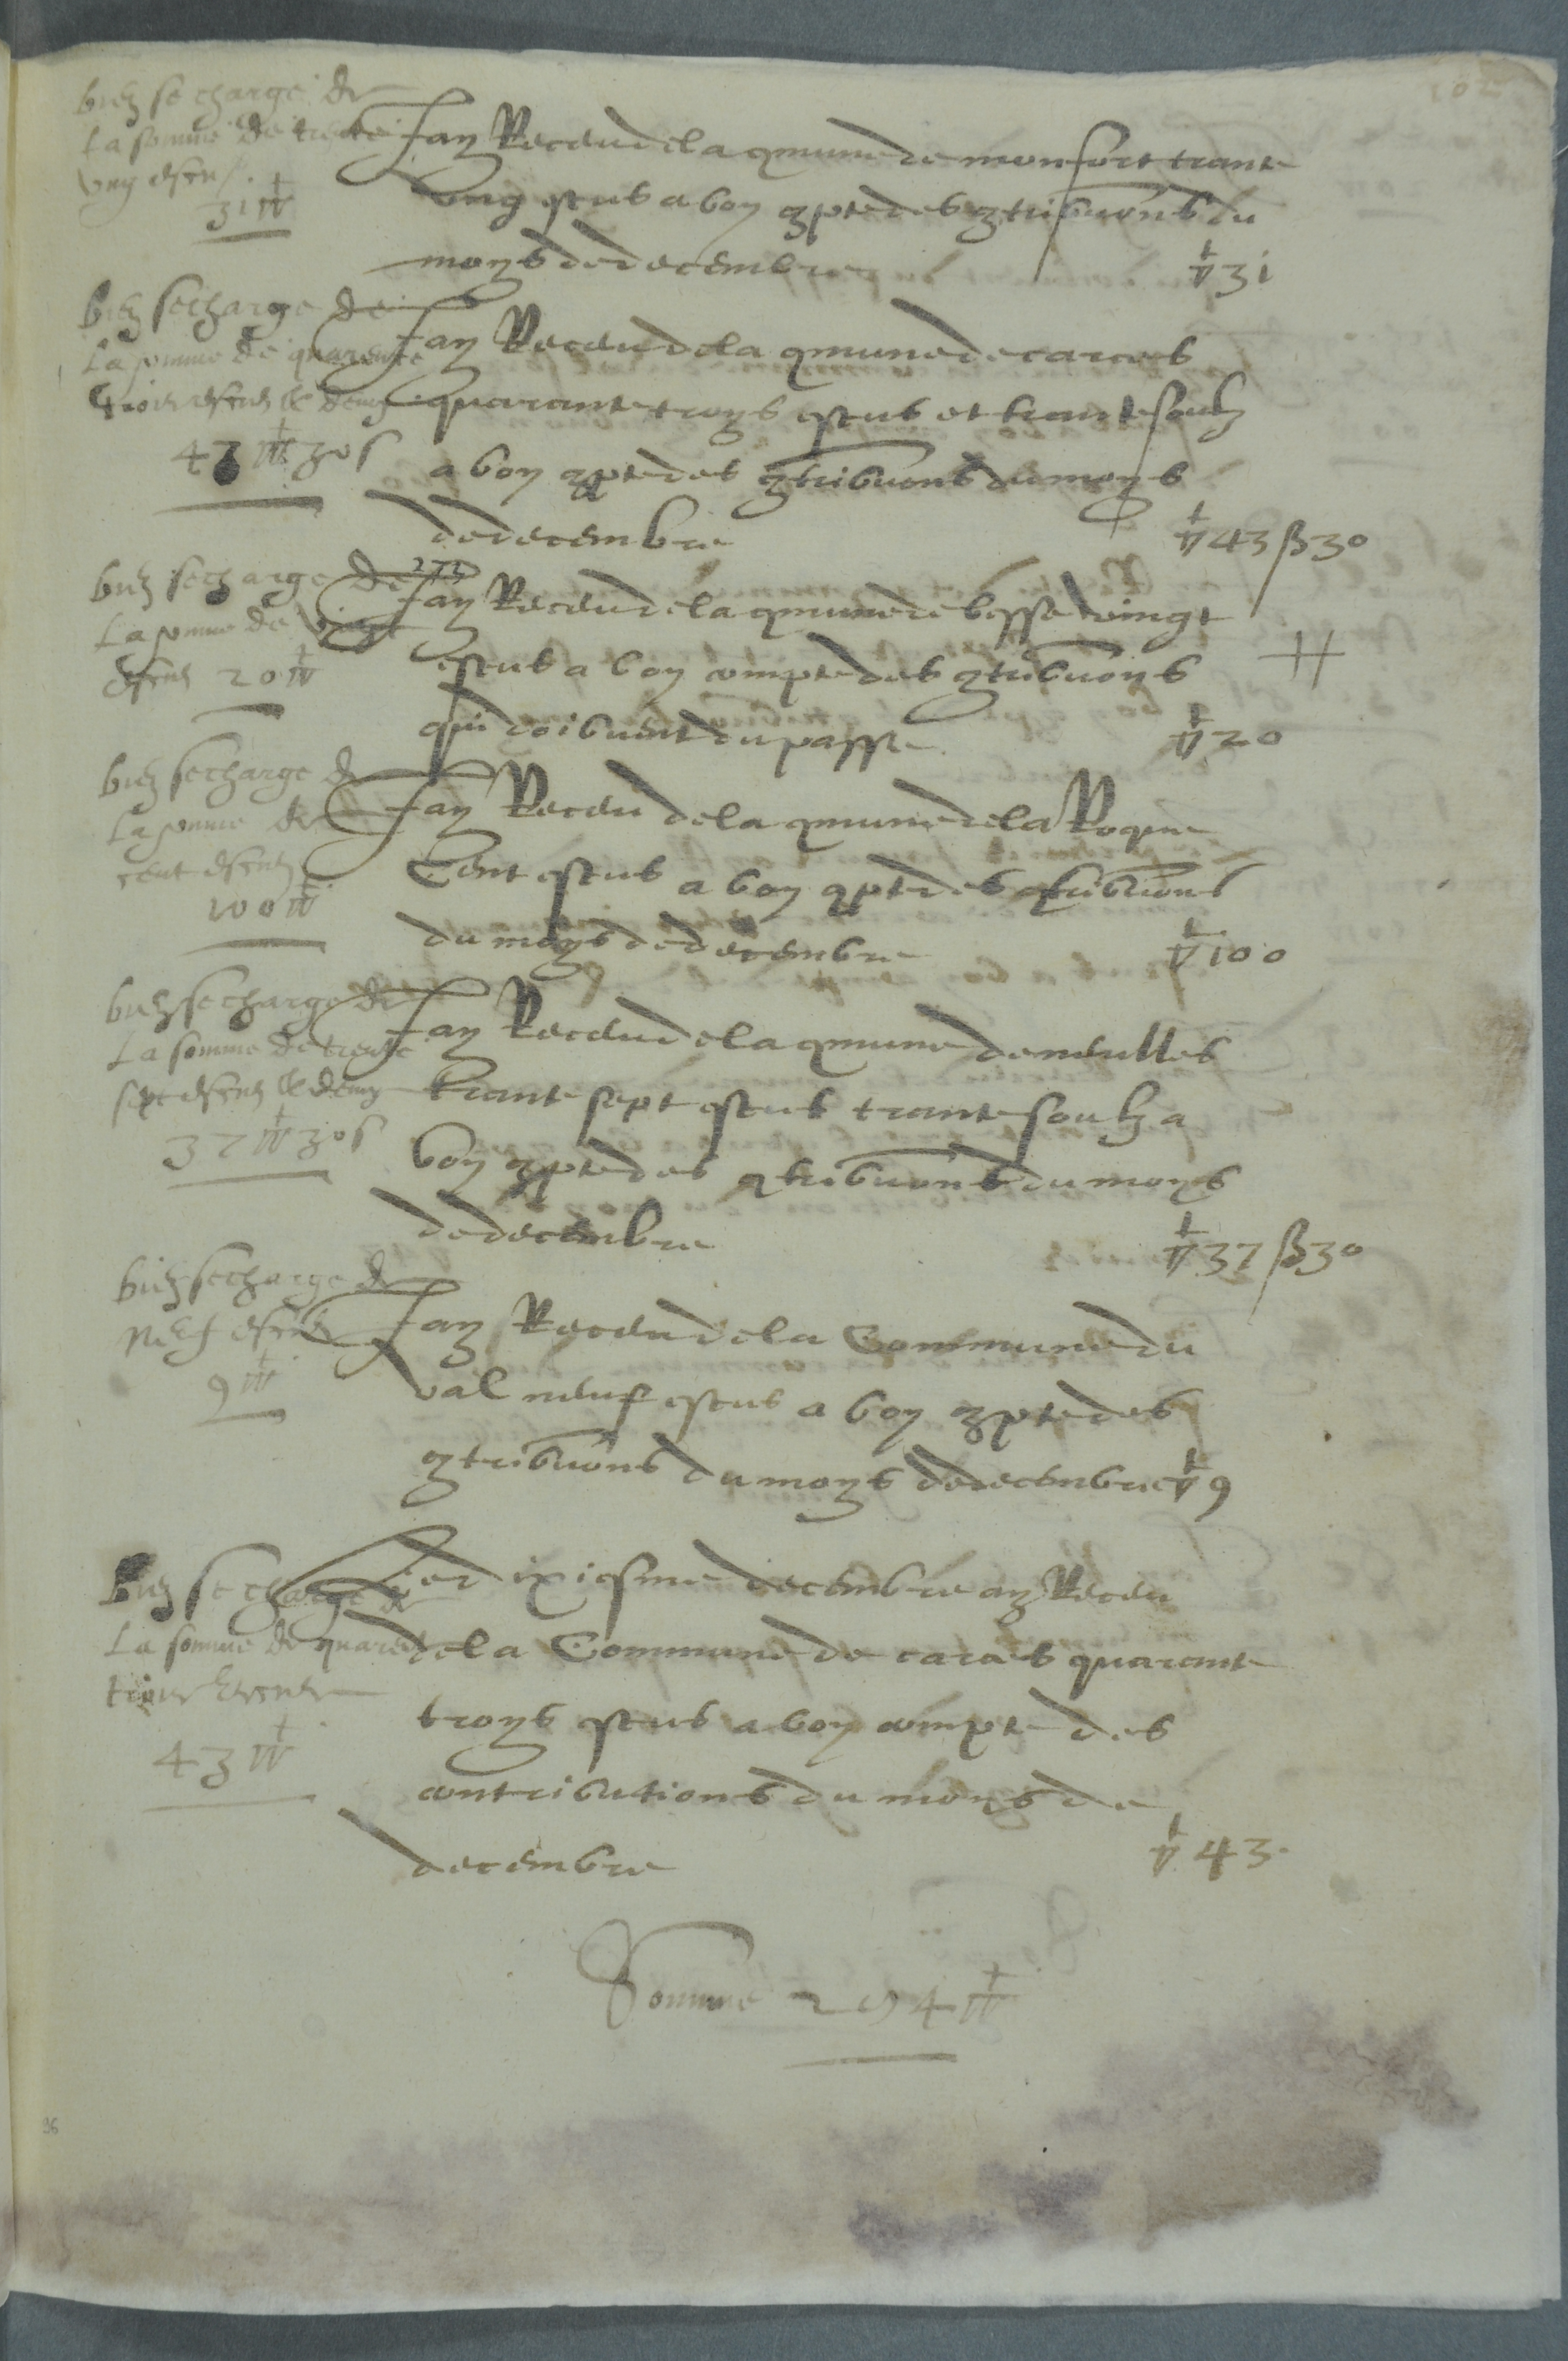 102
bien se charge de
la somme de trente
ung escu
31 ▽
Jay Receu de la qmune de monfort trante
ung escus a bon qpte des qtribuons du
moys de decembre ▽ 31
bien se charge de
la somme de quarente
trois escus & demy
43 ▽ 30 s
Jay Receu de la qmune de carces
quarante troys escus et trante soulz
a bon qpte des qtribuons du moys
de decembre ▽ 43 β 30
bien se charge de
la somme de vingt
escus 20 ▽
Jay Receu de la qmune de besse vingt
escus a bon compte des qtribuons
qui doibuent du passe ▽ 20
bien se charge de
la somme de
cent escus
100 ▽
Jay Receu de la qmune de la Roque
Cent escus a bon qpte des qtribuons
du moys de decembre ▽ 100
bien se charge de
la somme de trente
sept escus & demy
37 ▽ 30 s
Jay Receu de la qmune de neulles
trante sept escus trante soulz a
bon qpte des qtribuons du moys
de decembre ▽ 37 β 30
bien se charge de
neuf escus
9 ▽
Jay Receu de la Commune du
val neuf escus a bon qpte des
qtribuons du moys de decembre ▽ 9
bien se charge de
la somme de quarente
trois escus
43 ▽
Led ixiesme decembre ay Receu
de la Commune de carces quarante
troys escus a bon compte des
contributions du moys de
decembre ▽ 43
Somme 294 ▽
96